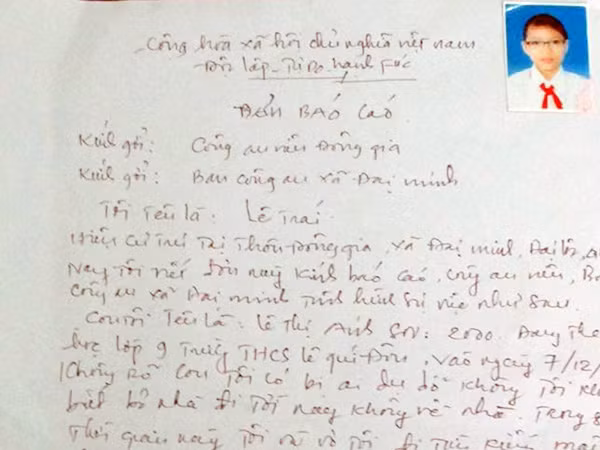 Công hoà xã hôi chủ nghĩa việt nam
Độc lập - Tự Do, hạnh fúc
ĐƠN BÁO CÁO
Kính gởi: Công an viên Đông gia
Kính gởi: Ban công an xã Đại minh
Tôi Tên là: Lê Trai
Hiện cư Trú Tại Thôn Đông gia, xã Đại minh, Đại lộc,
Nay Tôi viết đơn này Kính báo cáo, công an viên,
công an xã Đại minh Tình hình sự việc như sau.
Con Tôi Tên là: Lê Thị Anh SN: 2000. Đang
học lớp 9 Trường THCS Lê quí Đôn, vào ngày 7/12/
Không rõ con Tôi có bị ai dụ dỗ không Tôi
biết bỏ nhà đi Tới nay không về nhà. Trong
Thời gian này Tôi và vợ Tôi đi Tìm kiếm